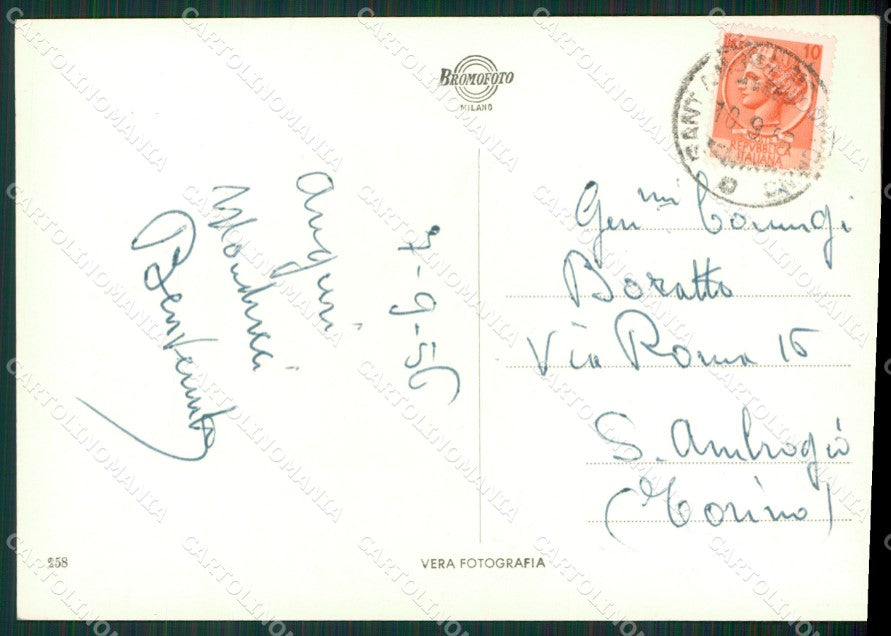 BROMOFOTO
MILANO
10
REPVBBLICA
ITALIANA
7-9-56
Auguri
Benvenuto
Gen mi Coniugi
Boratto
Via Roma 15
S. Ambrogio
(Torino)
258
VERA FOTOGRAFIA
CARTOLINOMANIA